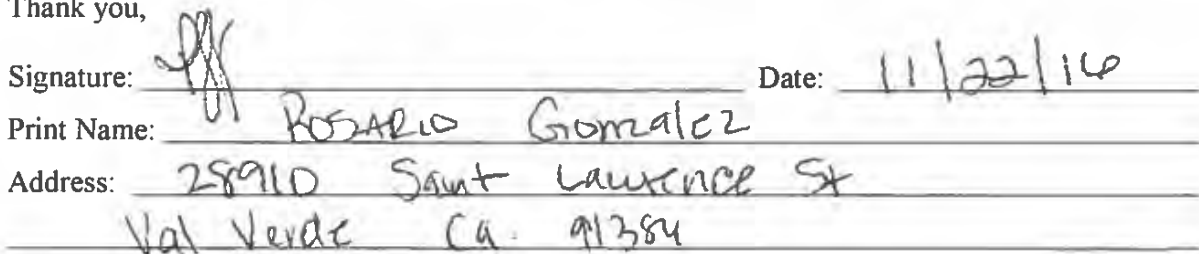 Thank you,
Signature: Date: 11/22/16
Print Name: ROSARIO Gonzalez
Address: 28910 Saint Lawrence St
Val Verde Ca. 91384